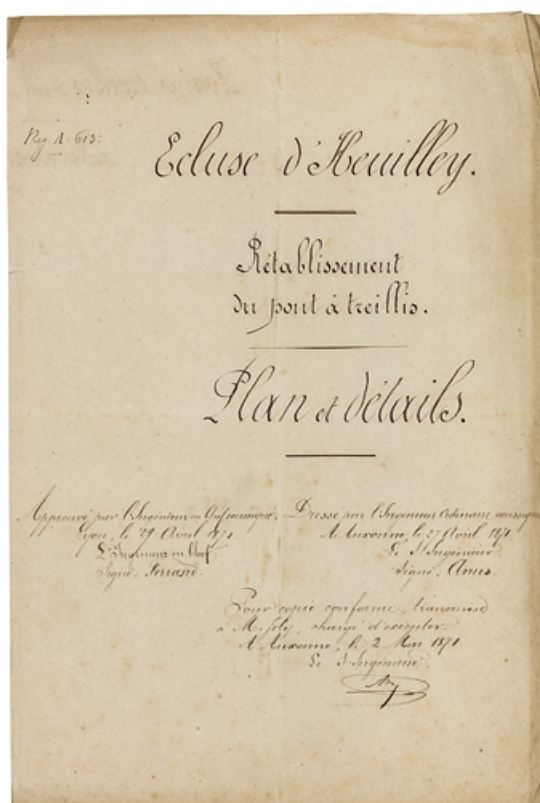 Reg. A - 613:
Ecluse d'Heuilley.
Rétablissement
du pont à treillis.
Plan et détails.
Approuvé par l'Ingénieur en Chef soussigné.
Lyon, le 29 Avril 1871.
L'Ingénieur en Chef.
Signé,
Dressé par l'Ingénieur Ordinaire soussigné
A Auxonne, le 27 Avril 1871
Le Sr Ingénieur
Signé,
Pour copie conforme, transmise
à M. chargé d'exécuter.
A Auxonne, le 2 Mai 1871
Le Sr Ingénieur